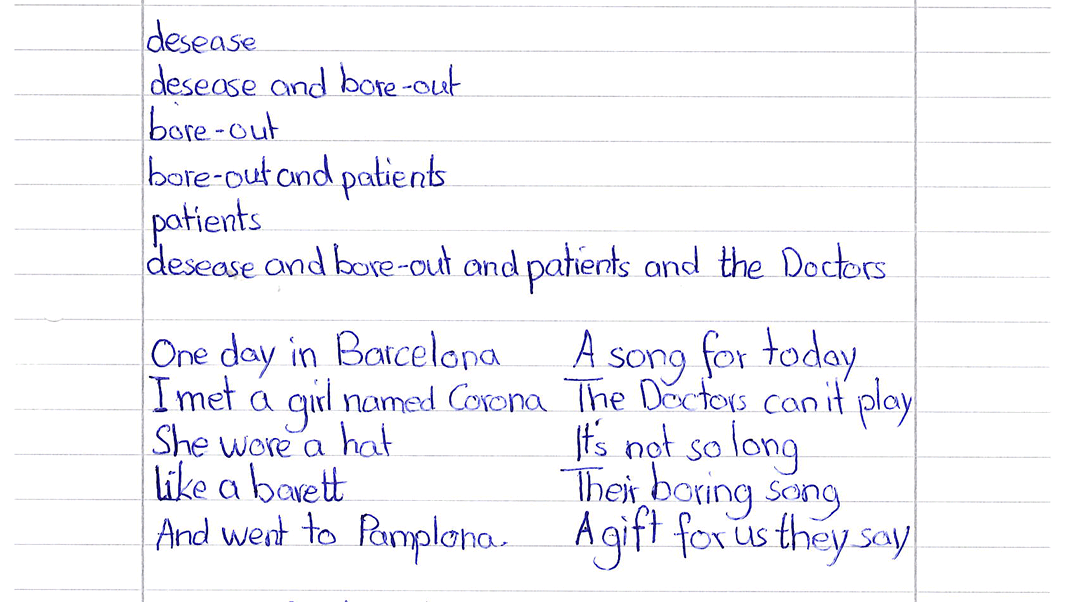 desease
desease and bore-out
bore-out
bore-out and patients
patients
desease and bore-out and patients and the Doctors
One day in Barcelona
I met a girl named Corona
She wore a hat
like a barett
And went to Pamplona.
A song for today
The Doctors can it play
It's not so long
Their boring song
A gift for us they say